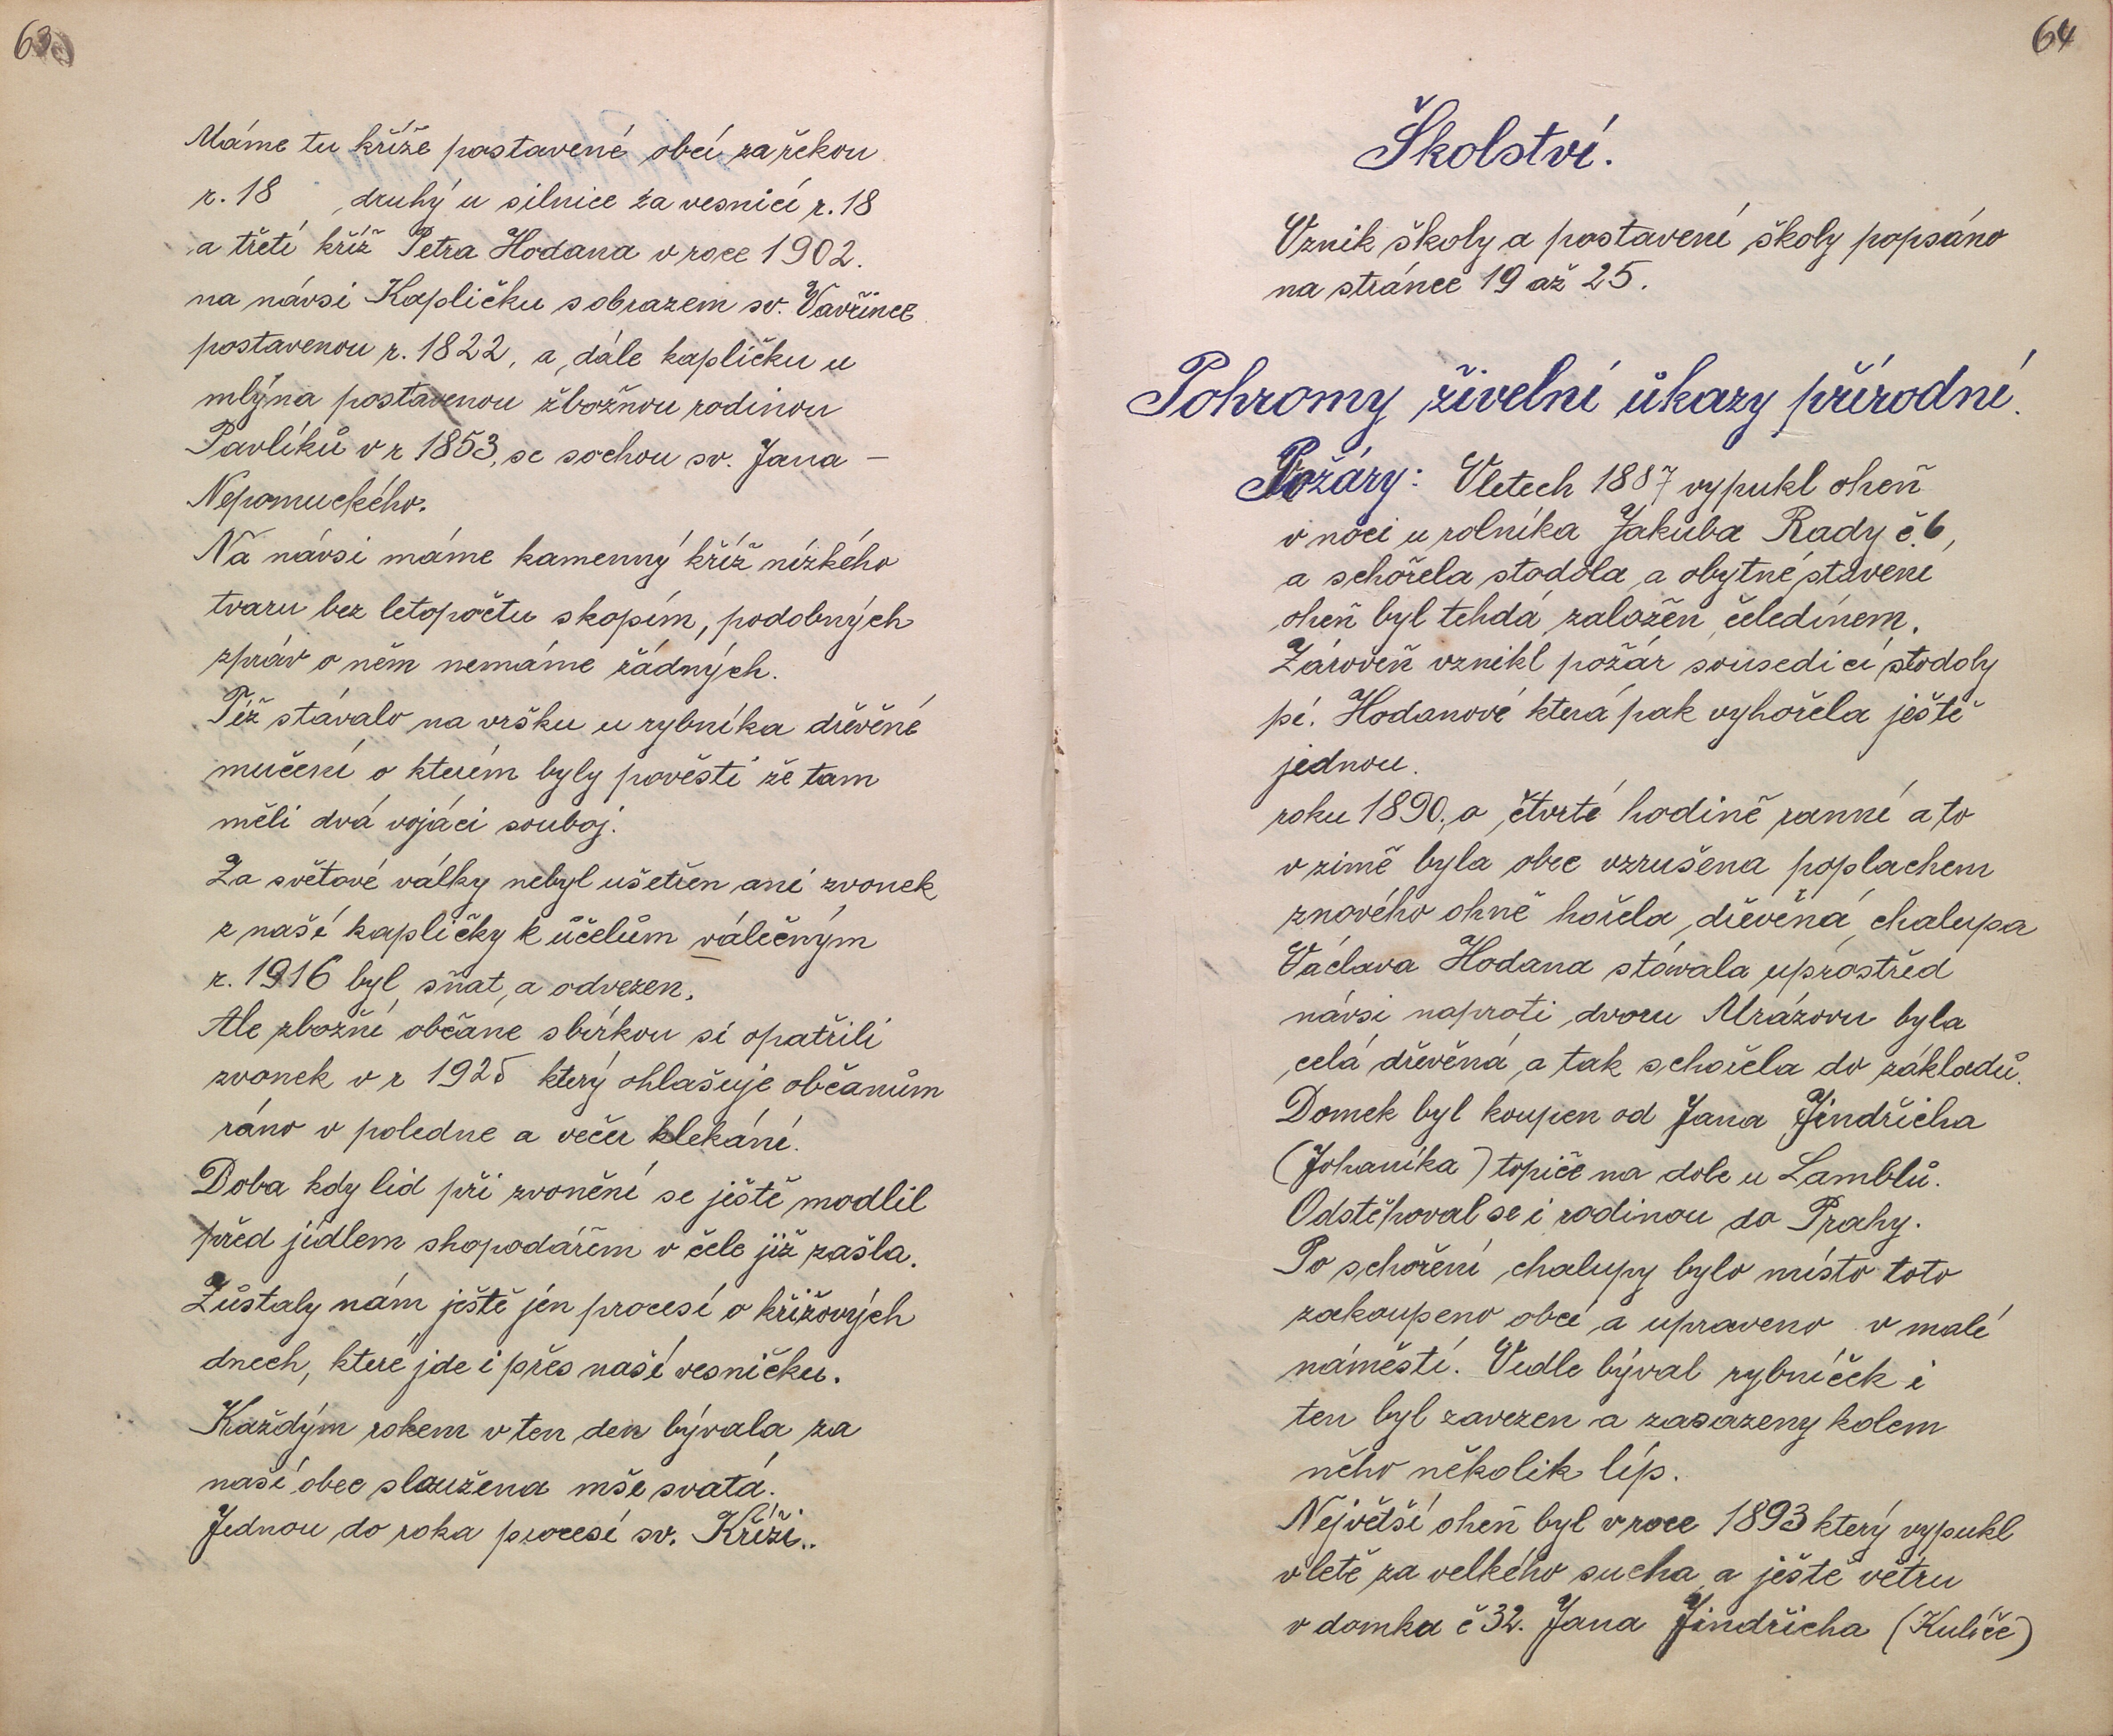 63
Máme tu kříže postavené obcí za řekou
r. 18 druhý u silnice za vesnicí r. 18
a třetí kříž Petra Hodana v roce 1902.
na návsi Kapličku s obrazem sv. Vavřince
postavenou r. 1822, a dále kapličku u
mlýna postavenou zbožnou rodinou
Pavlíků v r 1853, se sochou sv. Jana –
Nepomuckého.
Na návsi máme kamenný kříž nízkého
tvaru bez letopočtu skopím, podobných
zpráv o něm nemáme žádných.
Též stávalo na vršku u rybníka dřěvěné
mučení o kterém byly pověsti že tam
měli dvá vojáci souboj.
Za světové války nebyl ušetřen ani zvonek
z naší kapličky k účelům válečným
r. 1916 byl sňat, a odvezen,
Ale zbožní občane sbírkou si opatřili
zvonek v r 1925 který ohlašuje občanům
ráno v poledne a večer klekání.
Doba kdy lid při zvonění se ještě modlil
před jídlem shopodářem v čele již zašla.
Zůstaly nám ještě jen procesí o křížových
dnech, které jde i přes naší vesničku.
Každým rokem v ten den bývala za
naší obec sloužena mše svatá.
Jednou do roka procesí sv. Kříži..
64
Školství.
Vznik školy a postavení školy popsáno
na stránce 19 až 25.
Pohromy živelní úkazy přírodní.
Požáry: Vletech 1887 vypukl oheň
v noci u rolníka Jakuba Rady č. 6,
a schořela stodola a obytné stavení
oheň byl tehdá založen čeledínem.
Zároveň vznikl požár sousedící stodoly
pí. Hodanové která pak vyhořela ještě
jednou.
roku 1890, o čtvrté hodině ranní a to
v zimě byla obec vzrušena poplachem
znového ohně hořela dřevěná chalupa
Václava Hodana stávala uprostřed
návsi naproti dvoru Mrázovu byla
celá dřevěná a tak schořela do základů.
Domek byl koupen od Jana Jindřicha
(Johaníka) topiče na dole u Lamblů.
Odstěhoval se i rodinou do Prahy.
Po schoření chalupy bylo místo toto
zakoupeno obcí a upraveno v malé
náměstí. Vedle býval rybníček i
ten byl zavezen a zasazeny kolem
něho několik líp.
Největší oheň byl v roce 1893 který vypukl
v letě za velkého sucha a ještě větru
v domku č 32. Jana Jindřicha (Kulíče)